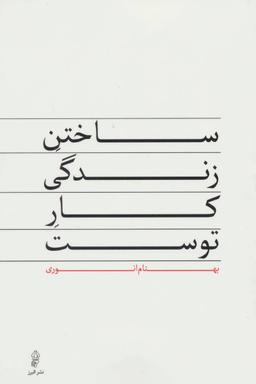 ساختنِ
زندگیِ
کارِ
توست
بهنام انوری
نشر البرز